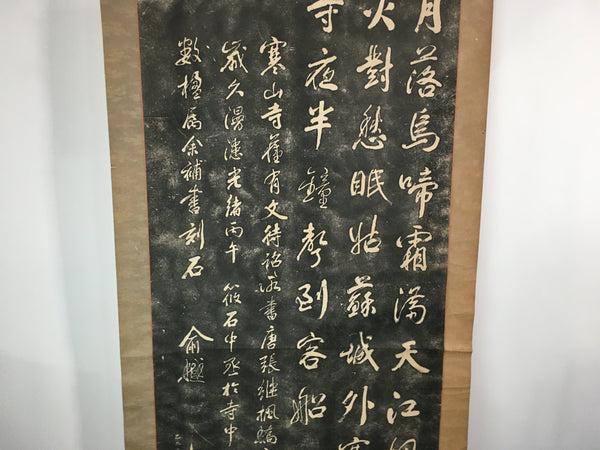 月落烏啼霜滿天江楓
火對愁眠姑蘇城外寒
寺夜半鐘聲到客船
寒山寺舊有文待詔所書唐張繼楓橋
歲久漫漶光緒丙午筱石中丞於寺中
數楹屬余補書刻石
俞樾